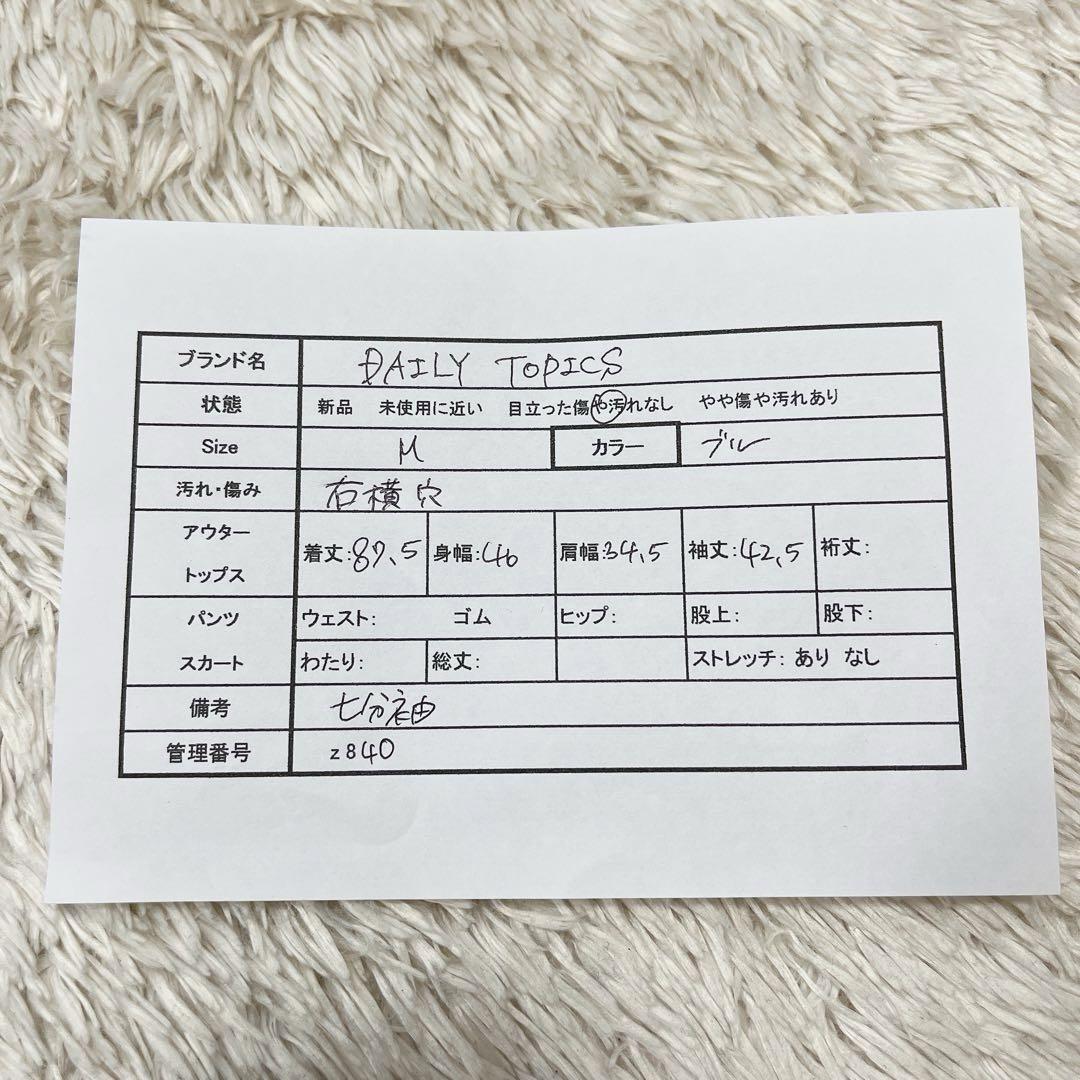 ブランド名 DAILY TOPICS
状態 新品 未使用に近い 目立った傷や汚れなし やや傷や汚れあり
Size M カラー ブルー
汚れ・傷み 右横穴
アウター
トップス
着丈:87,5 身幅:46 肩幅:34,5 袖丈:42,5 裄丈:
パンツ ウェスト: ゴム ヒップ: 股上: 股下:
スカート わたり: 総丈: ストレッチ: あり なし
備考 七分袖
管理番号 z840